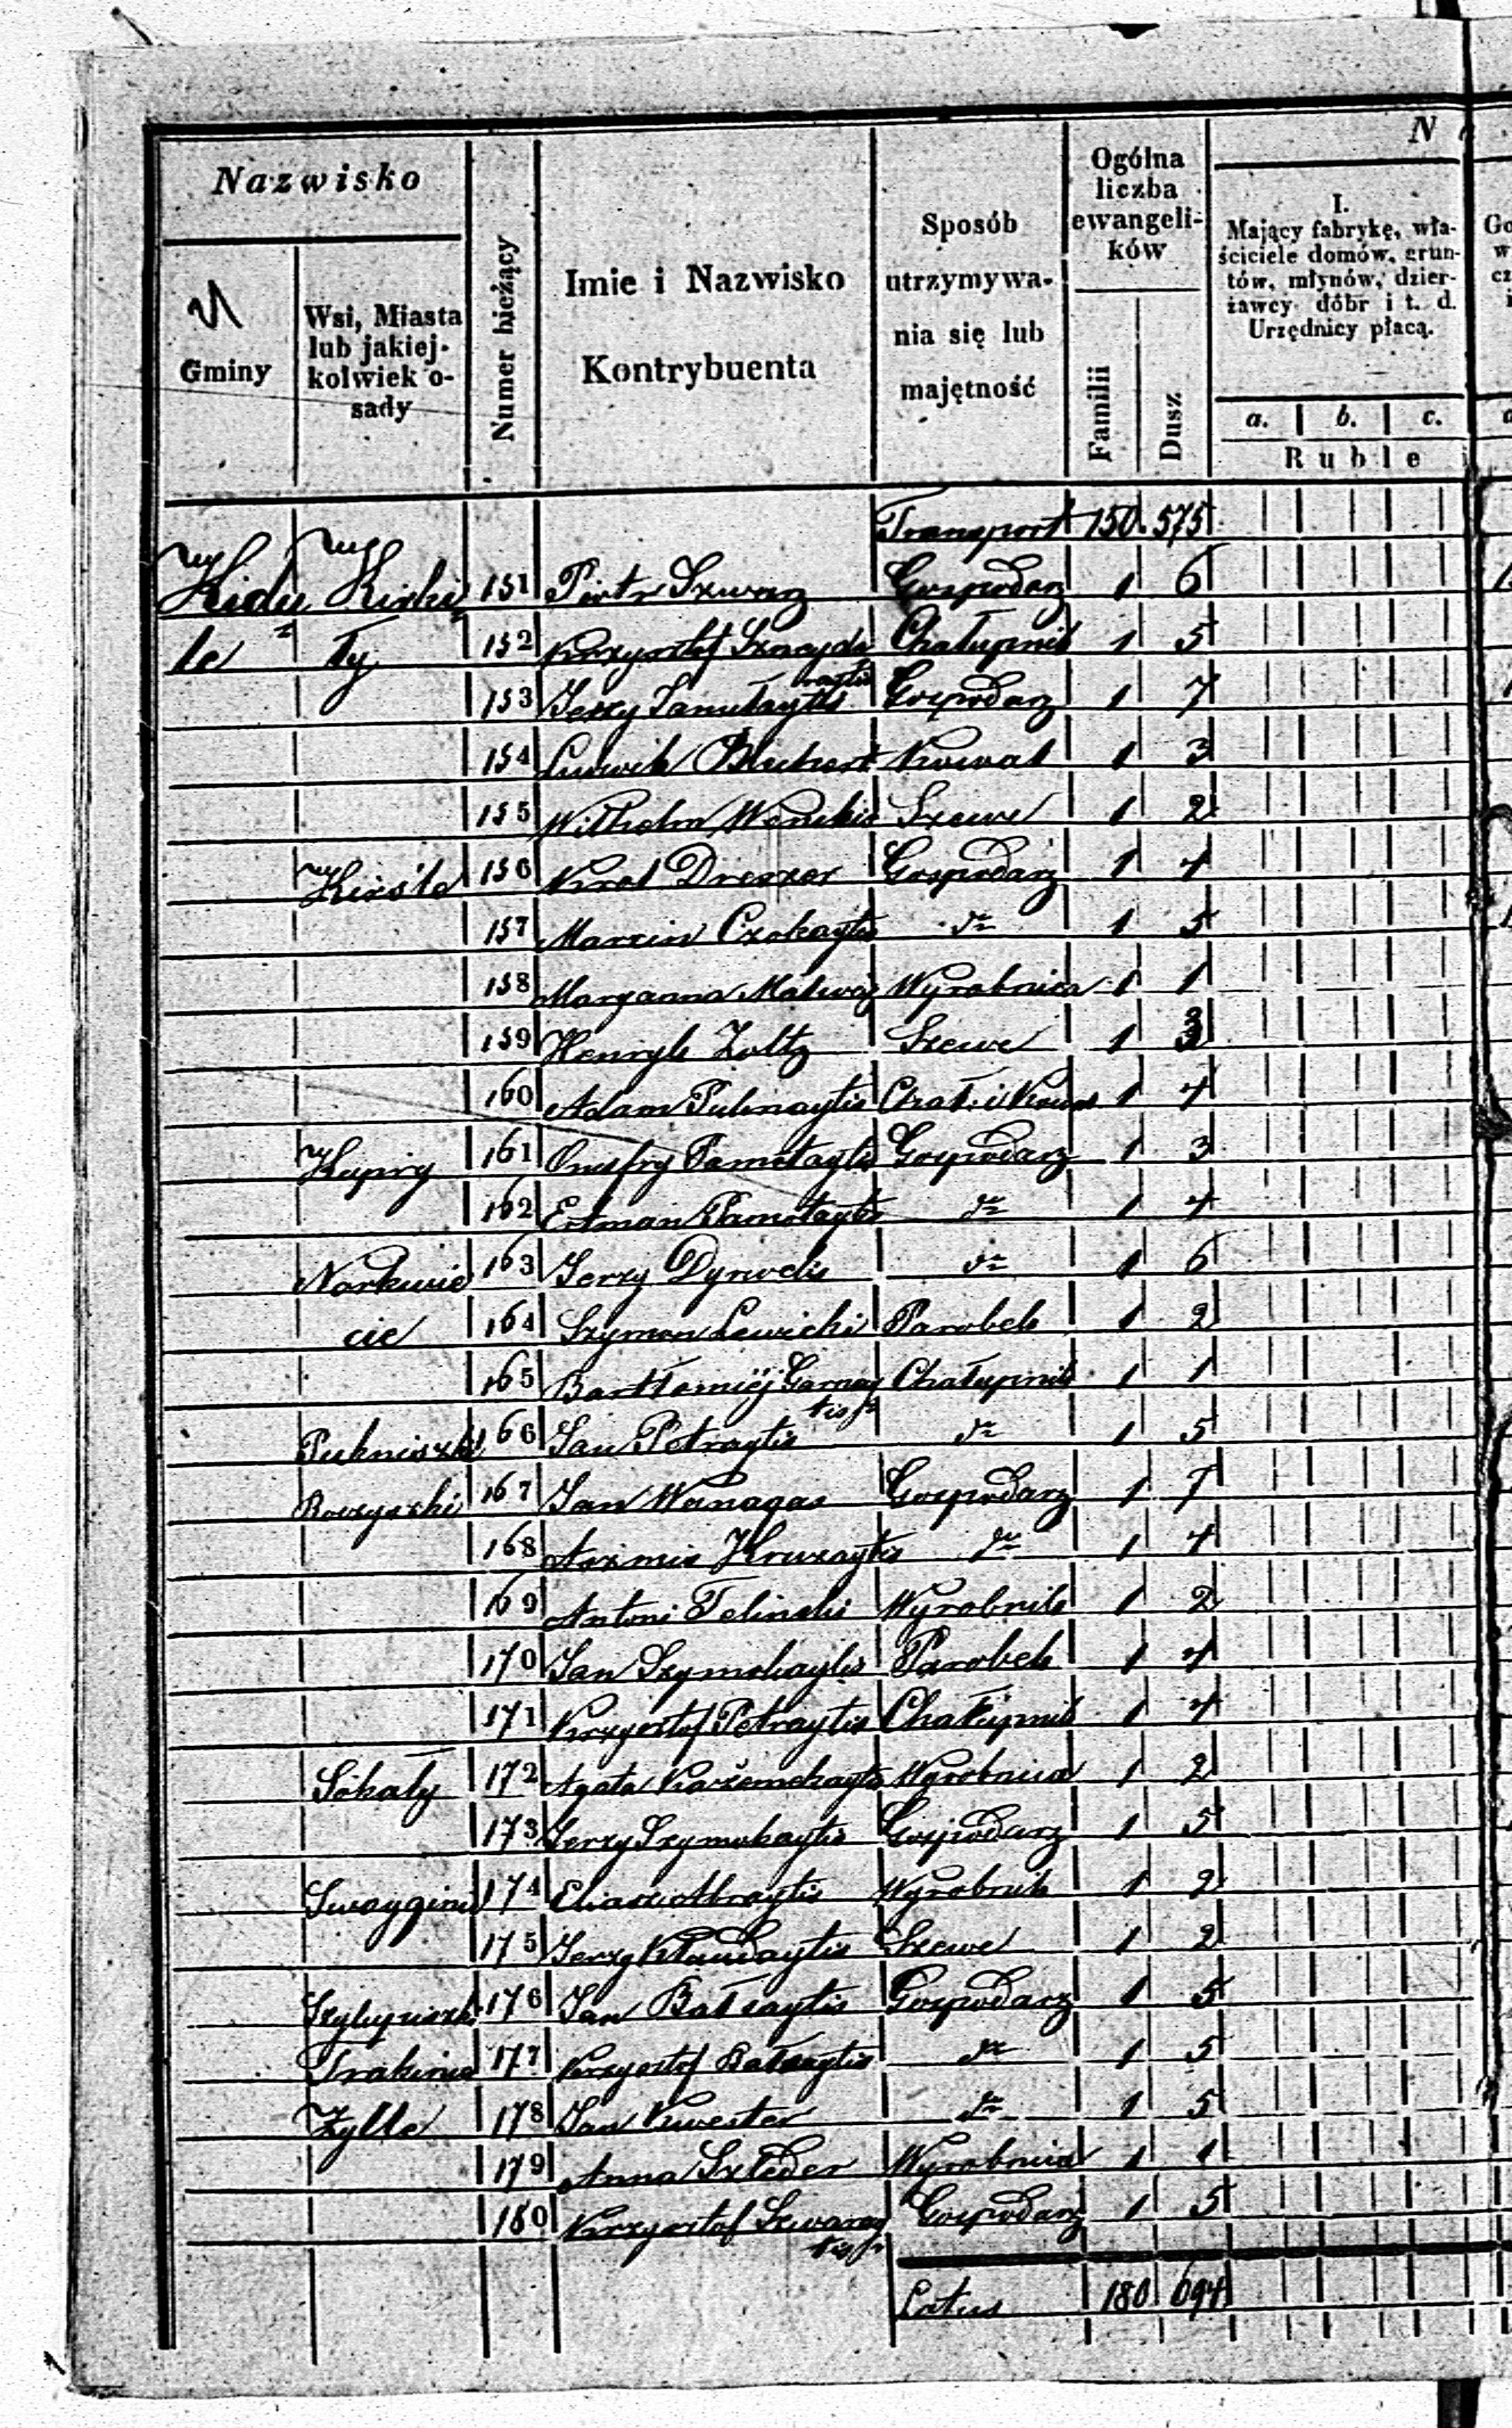 Nazwisko
Gminy
Wsi, Miasta
lub jakiej-
kolwiek o-
sady
Numer bieżący
Imie i Nazwisko
Kontrybuenta
Sposób
utrzymywa-
nia się lub
majętność
Ogólna
liczba
ewangeli-
ków
Familii
Dusz
N
I.
Mający fabrykę, wła-
ściciele domów, grun-
tów, młynów, dzier-
żawcy dóbr i t. d.
Urzędnicy płacą.
a. b. c.
Ruble
Transport 150 575
Kidu Kiski 151 Piotr Szwarz Gospodarz 1 6
le ły 152 Krzysztof Sznayde Chałupnik 1 5
raytis
153 Jerzy Janułaytis Gospodarz 1 7
154 Ludwik Blechert Kowal 1 3
155 Wilhelm Wenskis Szewc 1 2
Kirśle 156 Karol Drewzer Gospodarz 1 4
157 Marcin Czokaytis dto 1 5
158 Maryanna Matwey Wyrobnica 1 1
159 Henryk Zoltz Szewc 1 3
160 Adam Pulmaytis Chał. i Kowal 1 4
Kupry 161 Onufry Pamełaytis Gospodarz 1 3
162 Ertman Pamołaytis dto 1 4
Narkuie 163 Jerzy Dyrwelis dto 1 6
cie 164 Szymon Lewicki Parobek 1 2
165 Bartłomiej Gamay Chałupnik 1 1
tis
Pukniszki 166 Jan Petraytis dto 1 5
Roczyszki 167 Jan Wanagas Gospodarz 1 7
168 Azimis Kruzaytis dto 1 4
169 Antoni Telinskis Wyrobnik 1 2
170 Jan Szymokaytis Parobek 1 4
171 Krzysztof Petraytis Chałupnik 1 4
Sokały 172 Agata Każemekaytis Wyrobnica 1 2
173 Jerzy Szymokaytis Gospodarz 1 5
Swayginie 174 Eliasz Abraytis Wyrobnik 1 2
175 Jerzy Kłaudaytis Szewc 1 2
Szylupiszki 176 Jan Bałsaytis Gospodarz 1 5
Trakinie 177 Krzysztof Bałsaytis dto 1 5
Zylle 178 Jan Kwester dto 1 5
179 Anna Szleder Wyrobnica 1 1
180 Krzysztof Szwaray Gospodarz 1 5
tis
Latus 180 694